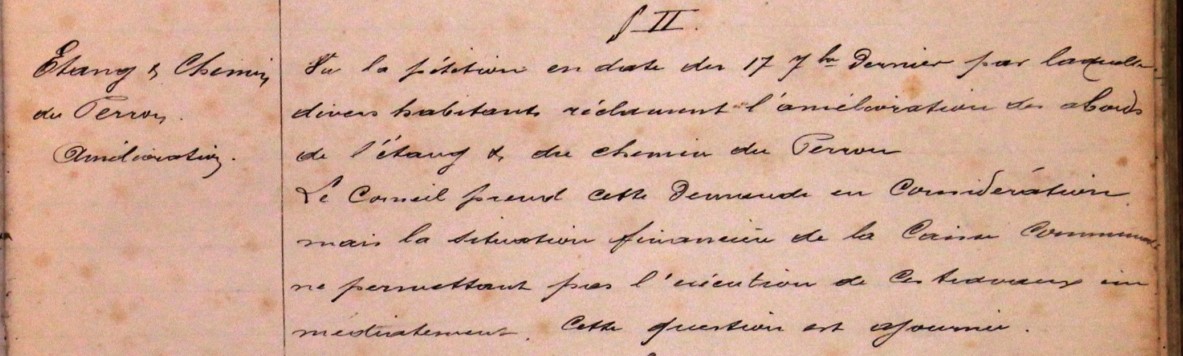 § II.
Etang & Chemin
du Perron.
Amélioration.
Vu la pétition en date du 17 7bre dernier par laquelle
divers habitants réclament l'amélioration des abords
de l'étang & du chemin du Perron
Le Conseil prend cette demande en considération
mais la situation financière de la Caisse Communale
ne permettant pas l'exécution de ces travaux im
médiatement, cette question est ajournée.